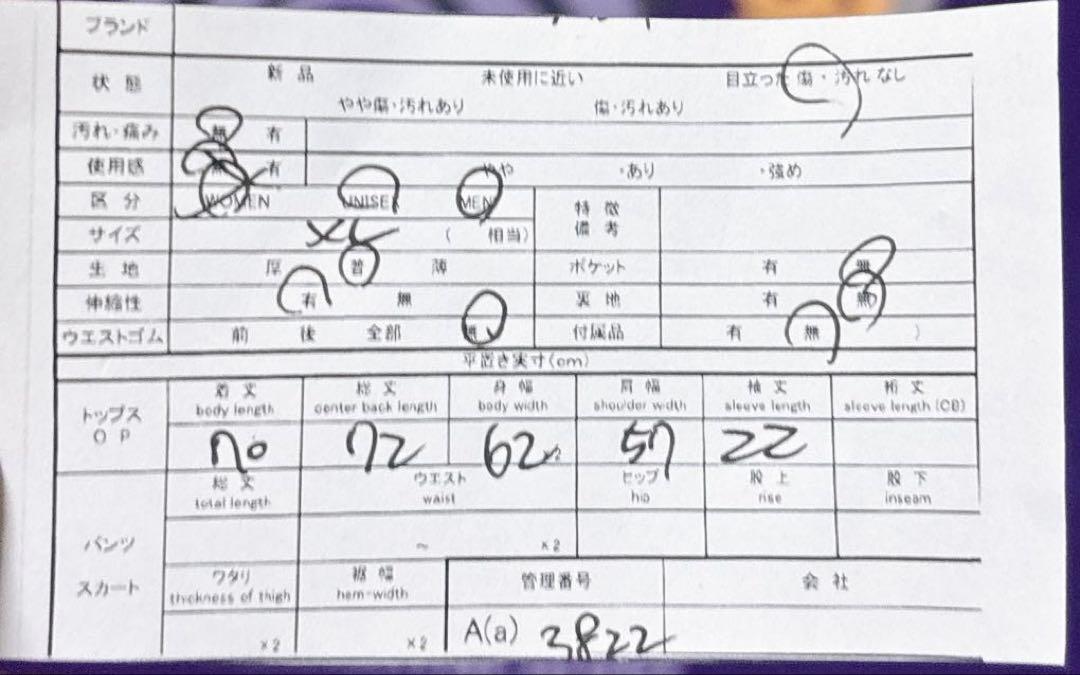 ブランド
状態 新品 未使用に近い 目立った傷・汚れなし
やや傷・汚れあり 傷・汚れあり
汚れ・痛み 無 有
使用感 無 有 やや ・あり ・強め
区分 WOMEN UNISEX MEN 特徴
備考
サイズ XL ( 相当)
生地 厚 普 薄 ポケット 有 無
伸縮性 有 無 裏地 有 無
ウエストゴム 前 後 全部 無 付属品 有 無 )
平置き実寸(cm)
トップス
OP
着丈 総丈 身幅 肩幅 袖丈 裄丈
body length center back length body width shoulder width sleeve length sleeve length (CB)
70 72 62 57 22
総丈 ウエスト ヒップ 股上 股下
total length waist hip rise inseam
パンツ ~ ×2
スカート
ワタリ 裾幅 管理番号 会社
thickness of thigh hem-width
×2 ×2 A(a) 3822